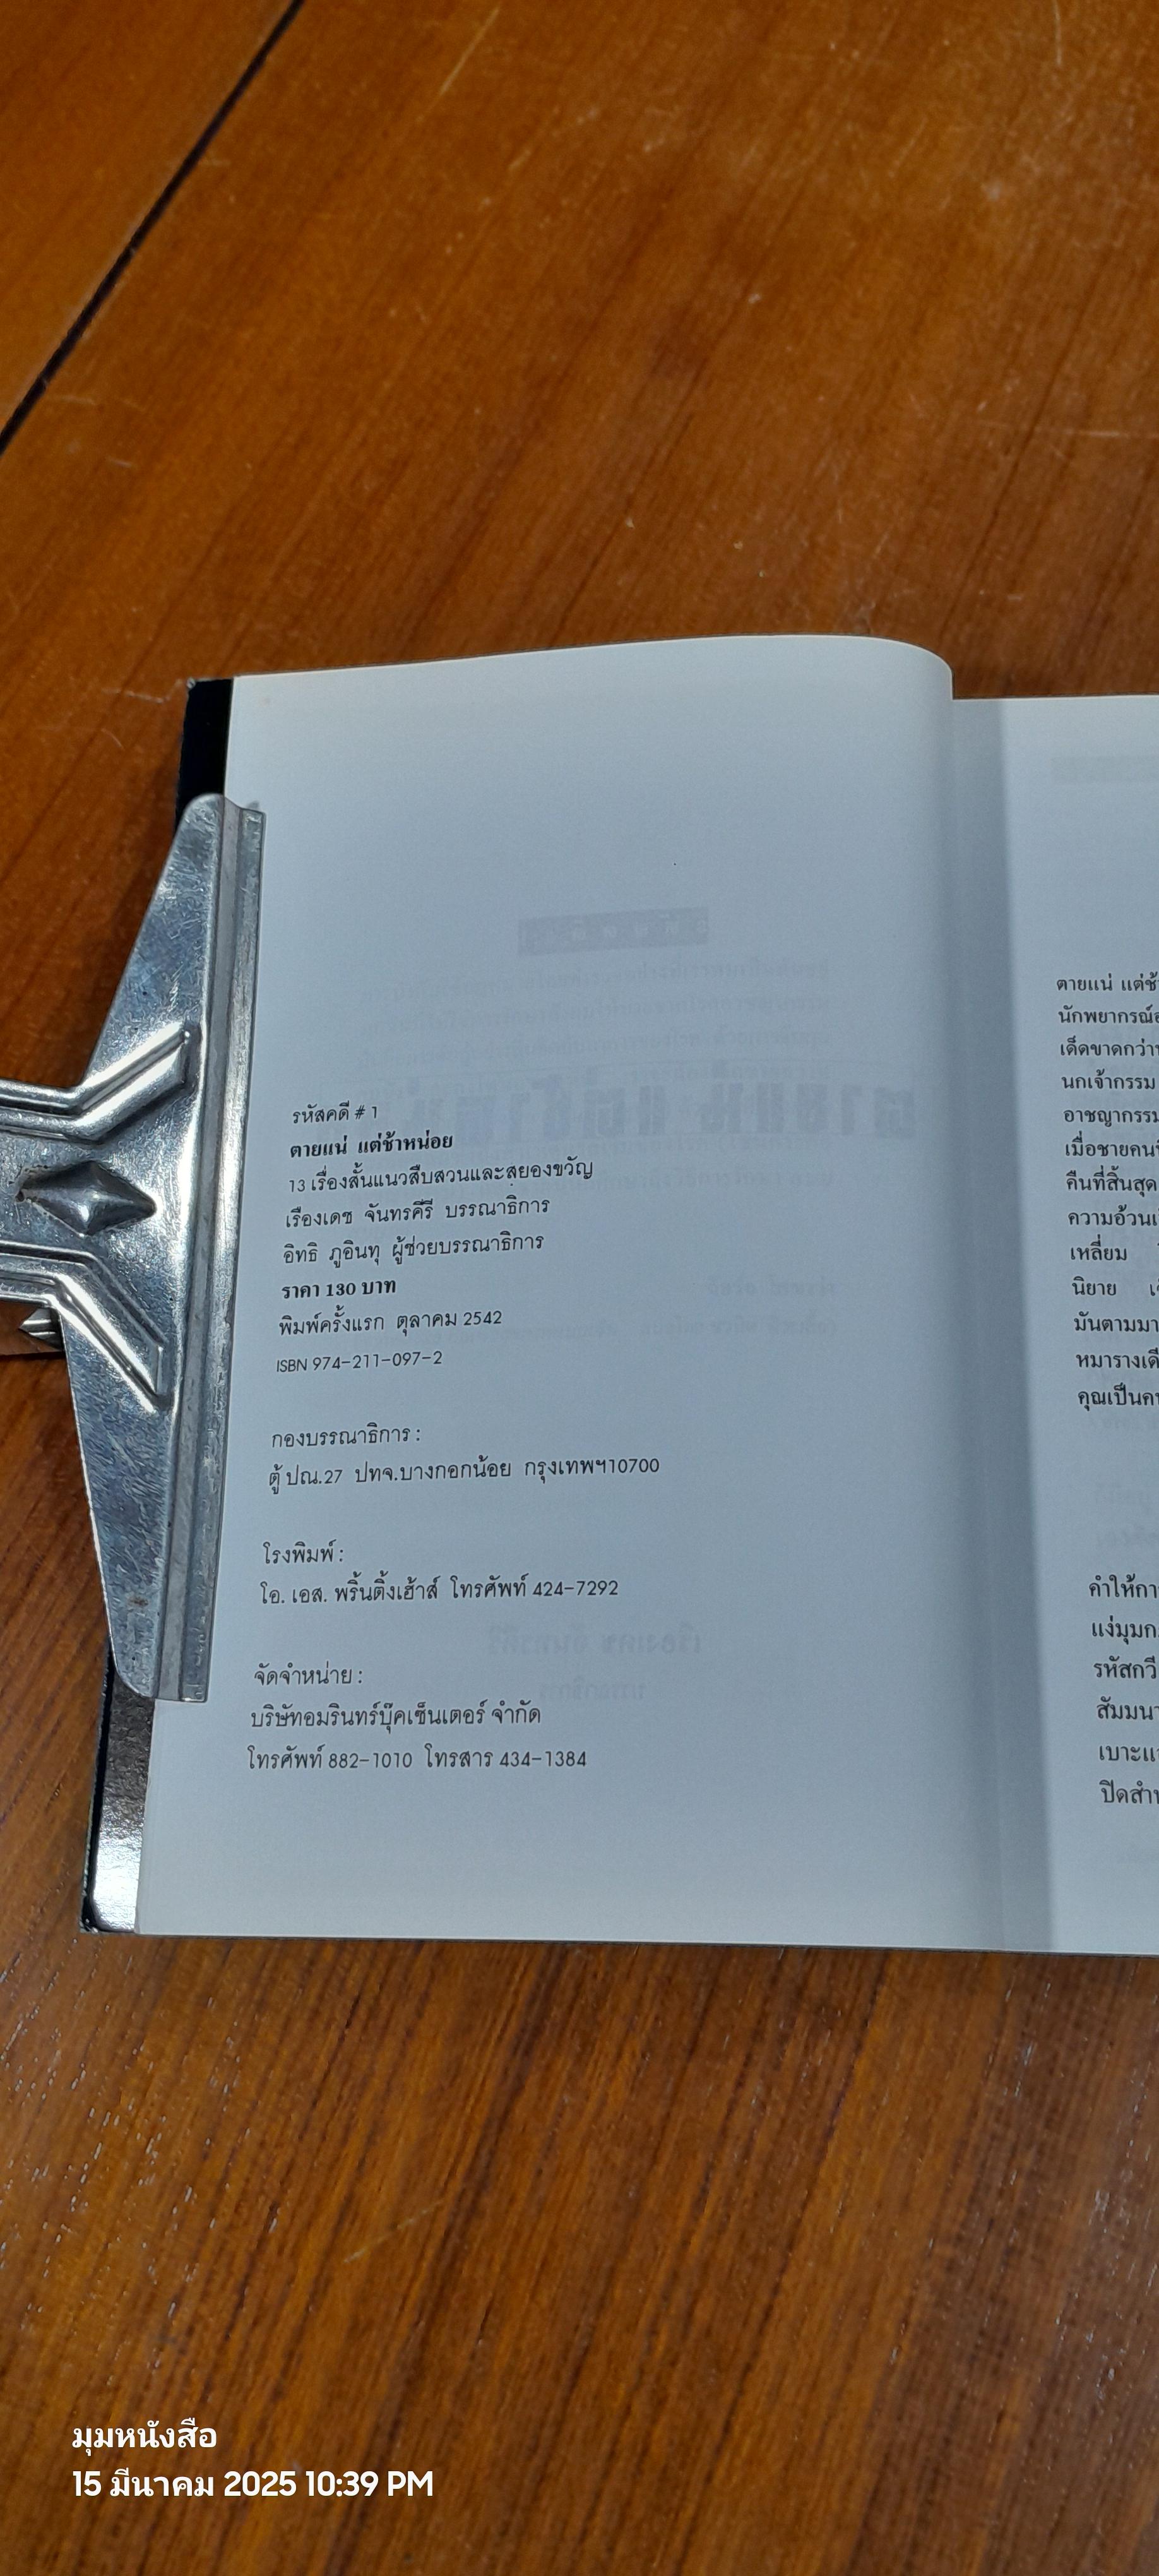 รหัสคดี # 1
ตายแน่ แต่ช้าหน่อย
13 เรื่องสั้นแนวสืบสวนและสยองขวัญ
เรืองเดช จันทรคีรี บรรณาธิการ
อิทธิ ภูอินทุ ผู้ช่วยบรรณาธิการ
ราคา 130 บาท
พิมพ์ครั้งแรก ตุลาคม 2542
ISBN 974-211-097-2
กองบรรณาธิการ :
ตู้ ปณ.27 ปทจ.บางกอกน้อย กรุงเทพฯ10700
โรงพิมพ์ :
โอ. เอส. พริ้นติ้งเฮ้าส์ โทรศัพท์ 424-7292
จัดจำหน่าย :
บริษัทอมรินทร์บุ๊คเซ็นเตอร์ จำกัด
โทรศัพท์ 882-1010 โทรสาร 434-1384
ตายแน่ แต่ช้
นักพยากรณ์
เด็ดขาดกว่า
นกเจ้ากรรม
อาชญากรรม
เมื่อชายคน
คืนที่สิ้นสุด
ความอ้วน
เหลี่ยม
นิยาย
มันตามมา
หมารางเ
คุณเป็นค
คำให้กา
แง่มุม
รหัสกวี
สัมมนา
เบาะแ
ปิดสำ
มุมหนังสือ
15 มีนาคม 2025 10:39 PM